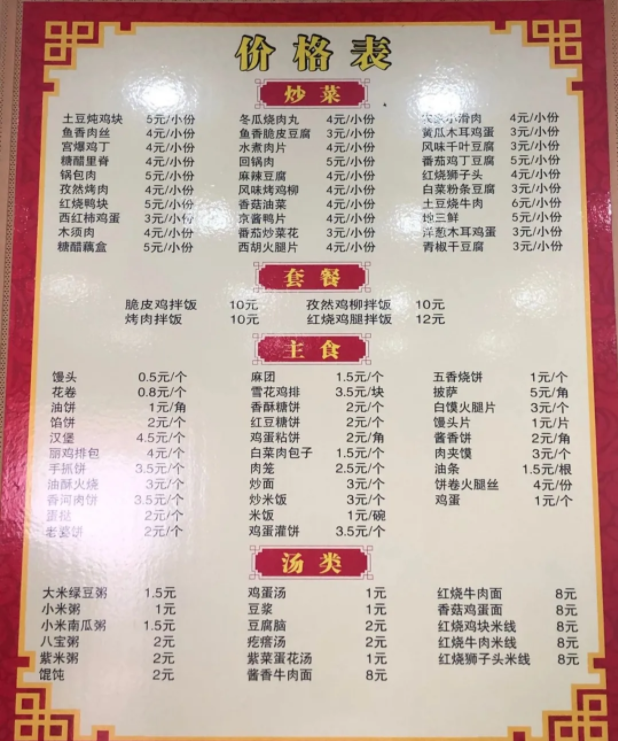 价格表
炒菜
土豆炖鸡块 5元/小份 冬瓜烧肉丸 4元/小份 小滑肉 4元/小份
鱼香肉丝 4元/小份 鱼香脆皮豆腐 3元/小份 黄瓜木耳鸡蛋 3元/小份
宫爆鸡丁 4元/小份 水煮肉片 4元/小份 风味千叶豆腐 3元/小份
糖醋里脊 4元/小份 回锅肉 5元/小份 番茄鸡丁豆腐 5元/小份
锅包肉 5元/小份 麻辣豆腐 4元/小份 红烧狮子头 4元/小份
孜然烤肉 4元/小份 风味烤鸡柳 4元/小份 白菜粉条豆腐 3元/小份
红烧鸭块 5元/小份 香菇油菜 4元/小份 土豆烧牛肉 6元/小份
西红柿鸡蛋 3元/小份 京酱鸭片 4元/小份 地三鲜 5元/小份
木须肉 4元/小份 番茄炒菜花 3元/小份 洋葱木耳鸡蛋 3元/小份
糖醋藕盒 5元/小份 西胡火腿片 4元/小份 青椒干豆腐 3元/小份
套餐
脆皮鸡拌饭 10元 孜然鸡柳拌饭 10元
烤肉拌饭 10元 红烧鸡腿拌饭 12元
主食
馒头 0.5元/个 麻团 1.5元/个 五香烧饼 1元/个
花卷 0.8元/个 雪花鸡排 3.5元/块 披萨 5元/角
油饼 1元/角 香酥糖饼 2元/个 白馍火腿片 3元/个
馅饼 2元/个 红豆糖饼 2元/个 馒头片 1元/片
汉堡 4.5元/个 鸡蛋粘饼 2元/角 酱香饼 2元/角
丽鸡排包 4元/个 白菜肉包子 1.5元/个 肉夹馍 3元/个
手抓饼 3.5元/个 肉笼 2.5元/个 油条 1.5元/根
油酥火烧 3元/个 炒面 3元/个 饼卷火腿丝 4元/份
香河肉饼 3.5元/个 炒米饭 3元/个 鸡蛋 1元/个
蛋挞 2元/个 米饭 1元/碗
老婆饼 2元/个 鸡蛋灌饼 3.5元/个
汤类
大米绿豆粥 1.5元 鸡蛋汤 1元 红烧牛肉面 8元
小米粥 1元 豆浆 1元 香菇鸡蛋面 8元
小米南瓜粥 1.5元 豆腐脑 2元 红烧鸡块米线 8元
八宝粥 2元 疙瘩汤 2元 红烧牛肉米线 8元
紫米粥 2元 紫菜蛋花汤 1元 红烧狮子头米线 8元
馄饨 2元 酱香牛肉面 8元